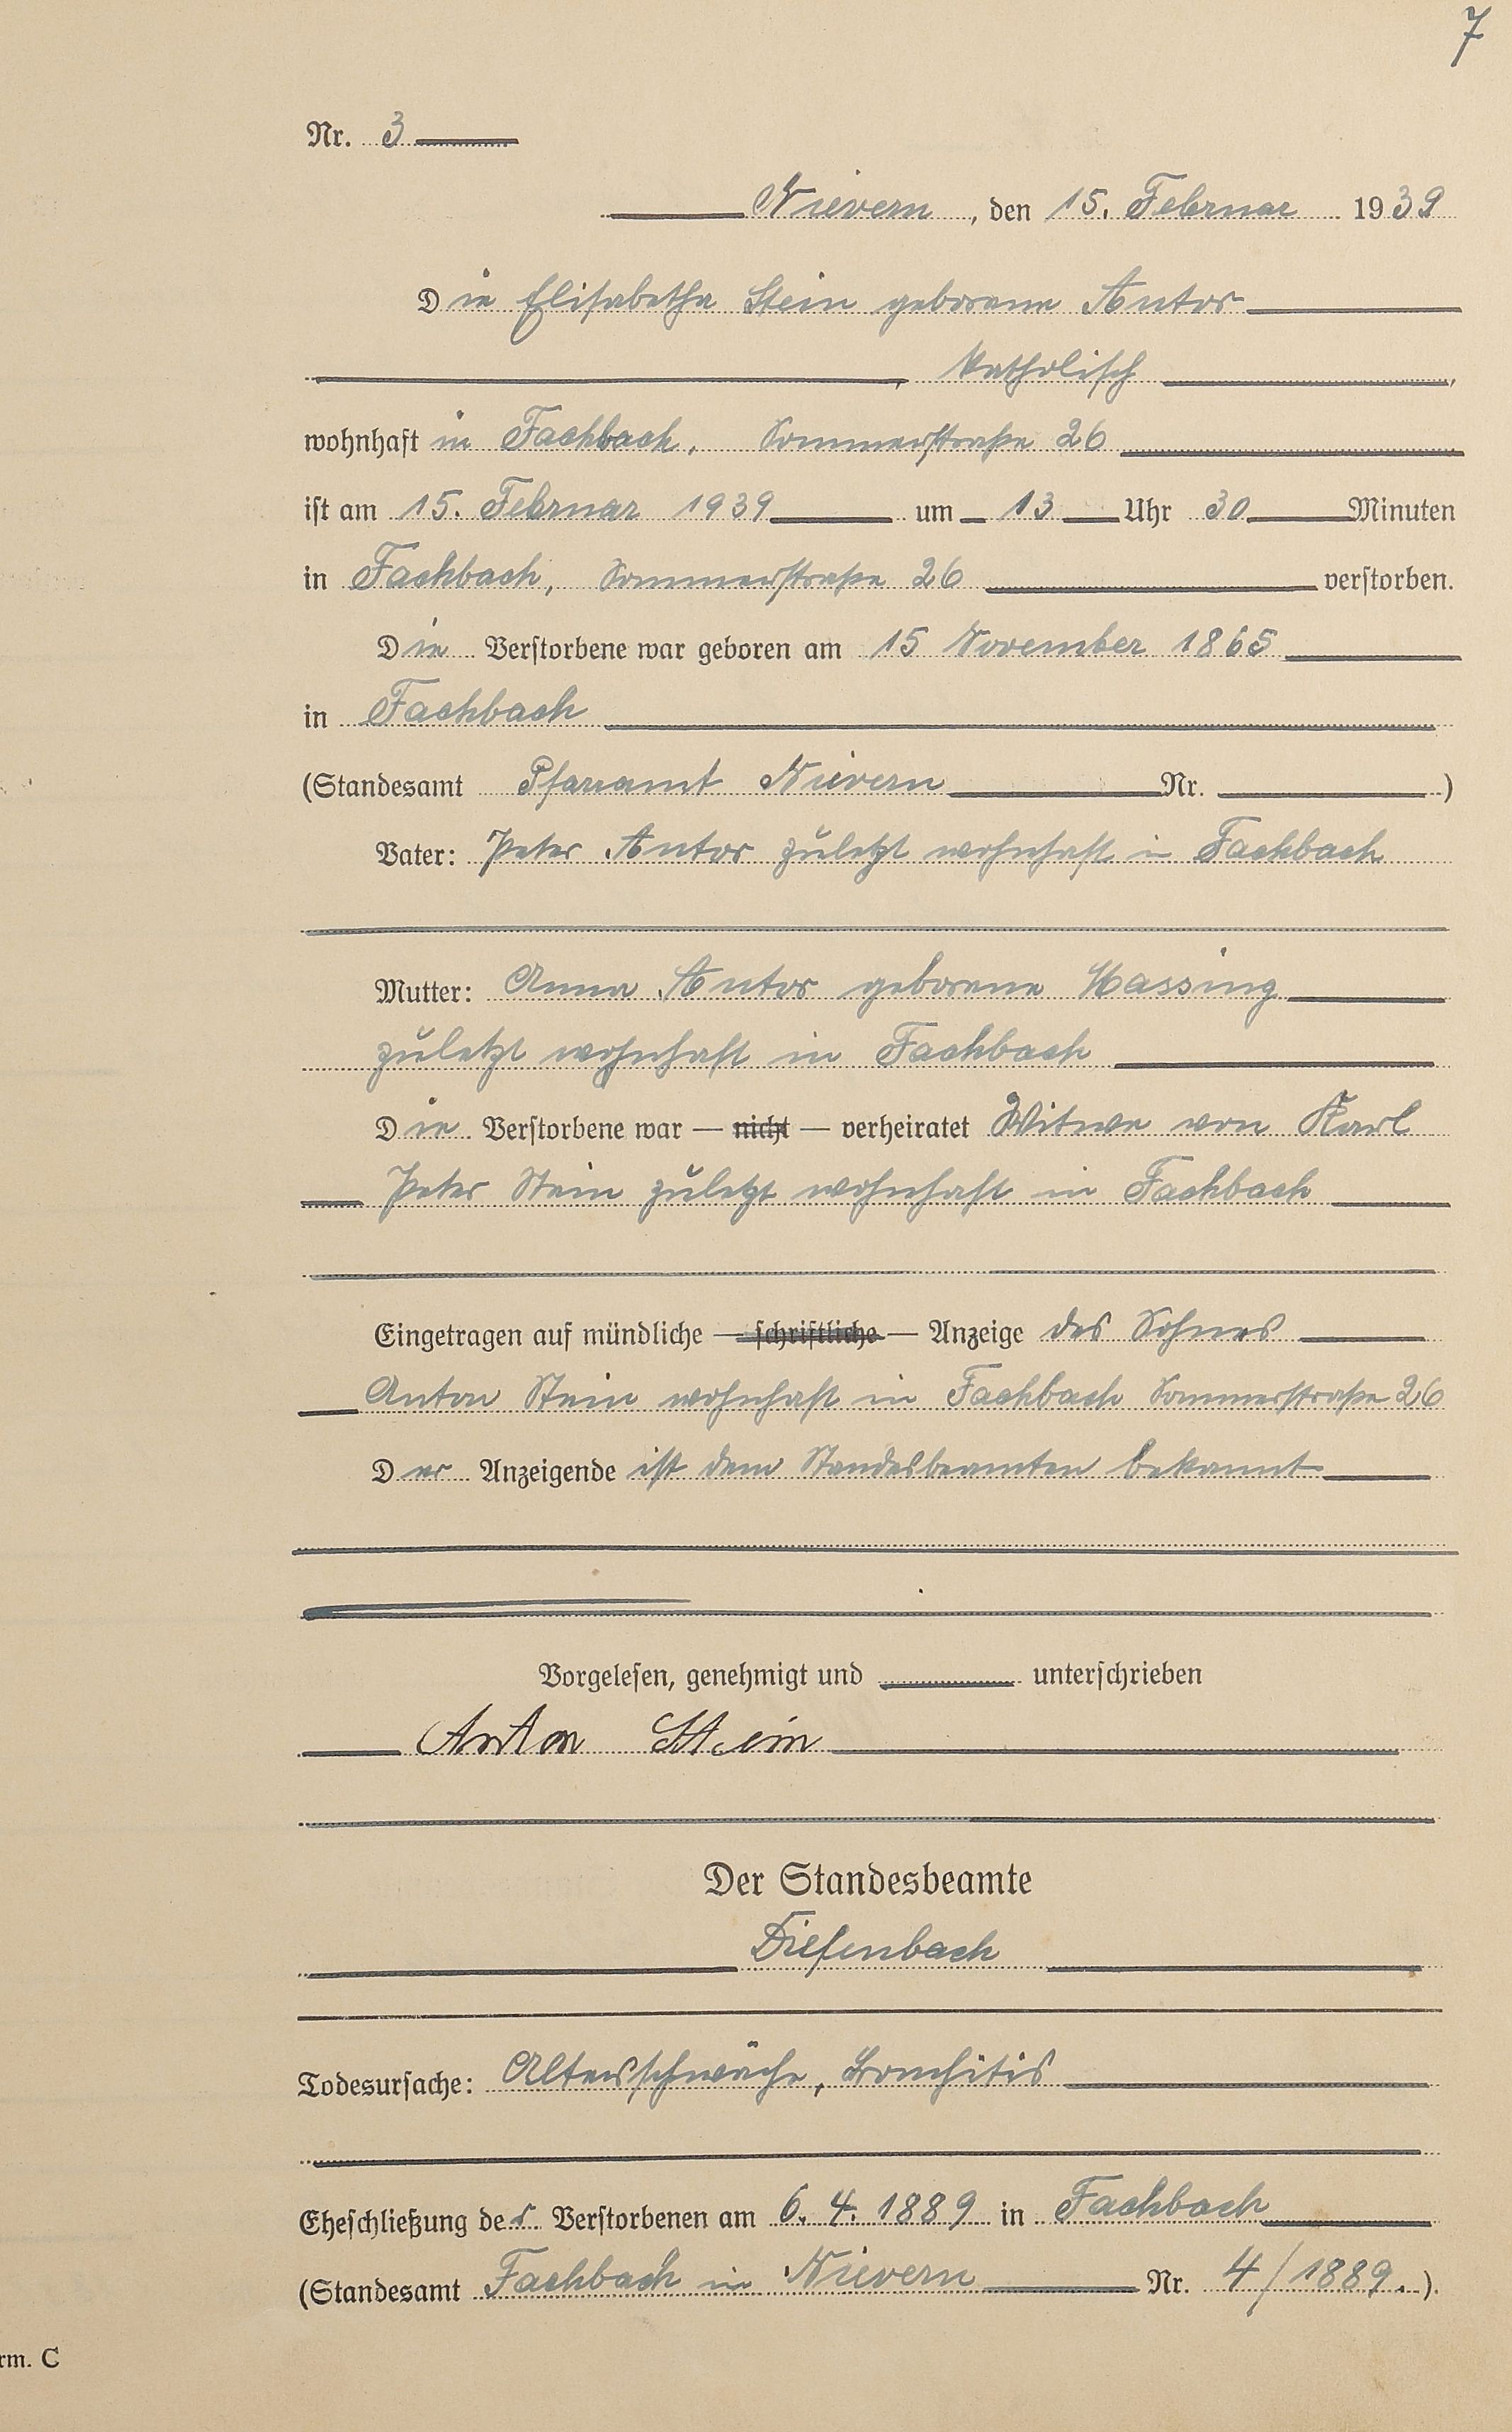 7
Nr. 3
Nievern, den 15. Februar 1939
Die Elisabetha Stein geborene Antor
, katholisch,
wohnhaft in Fachbach, Sommerstraße 26
ist am 15. Februar 1939 um 13 Uhr 30 Minuten
in Fachbach, Sommerstraße 26 verstorben.
Die Verstorbene war geboren am 15 November 1865
in Fachbach
(Standesamt Pfarramt Nievern Nr. )
Vater: Peter Antor zuletzt wohnhaft in Fachbach
Mutter: Anna Antor geborene Massing
zuletzt wohnhaft in Fachbach
Die Verstorbene war — nicht — verheiratet Witwe von Karl
Peter Stein zuletzt wohnhaft in Fachbach
Eingetragen auf mündliche — schriftliche — Anzeige des Sohnes
Anton Stein wohnhaft in Fachbach Sommerstraße 26
Der Anzeigende ist dem Standesbeamten bekannt
Vorgelesen, genehmigt und unterschrieben
Anton Stein
Der Standesbeamte
Diefenbach
Todesursache: Altersschwäche, Bronchitis
Eheschließung der Verstorbenen am 6. 4. 1889 in Fachbach
(Standesamt Fachbach in Nievern Nr. 4/1889.).
rm. C